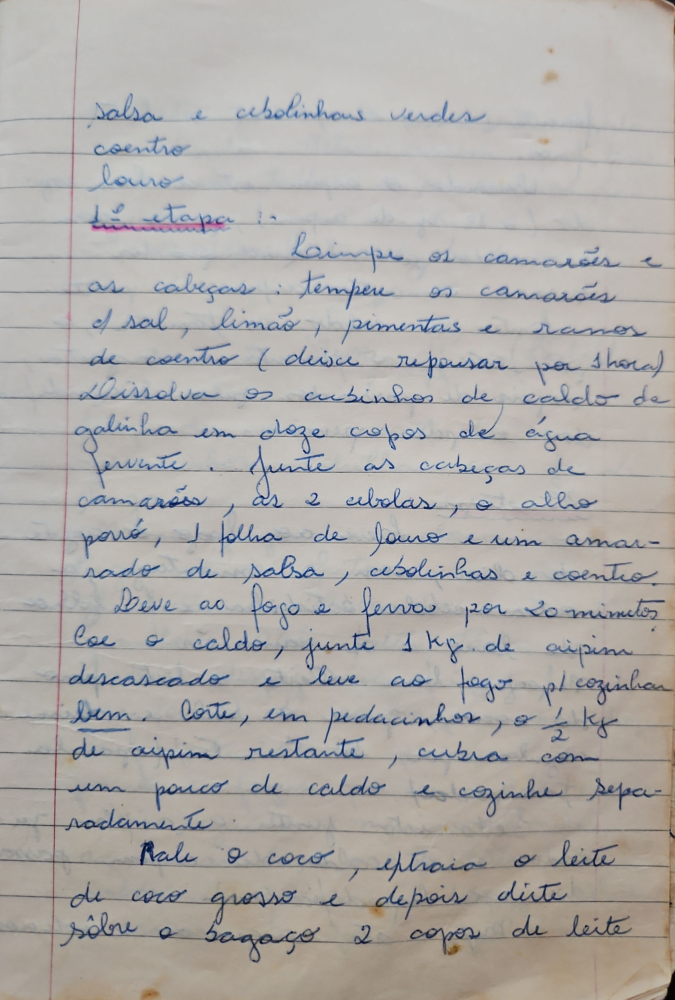 salsa e cebolinhas verdes
coentro
louro
1ª etapa :.
Limpe os camarões e
as cabeças : tempere os camarões
c/ sal, limão, pimentas e ramos
de coentro (deixe repousar por 1 hora)
Dissolva os cubinhos de caldo de
galinha em doze copos de água
fervente. Junte as cabeças de
camarões, as 2 cebolas, o alho
porró, 1 folha de louro e um amar-
rado de salsa, cebolinhas e coentro.
Leve ao fogo e ferva por 20 minutos.
Coe o caldo, junte 1 Kg. de aipim
descascado e leve ao fogo p/ cozinhar
bem. Corte, em pedacinhos, o 1/2 Kg
de aipim restante, cubra com
um pouco de caldo e cozinhe sepa-
radamente.
Rale o coco, extraia o leite
de coco grosso e depois deite
sôbre o bagaço 2 copos de leite